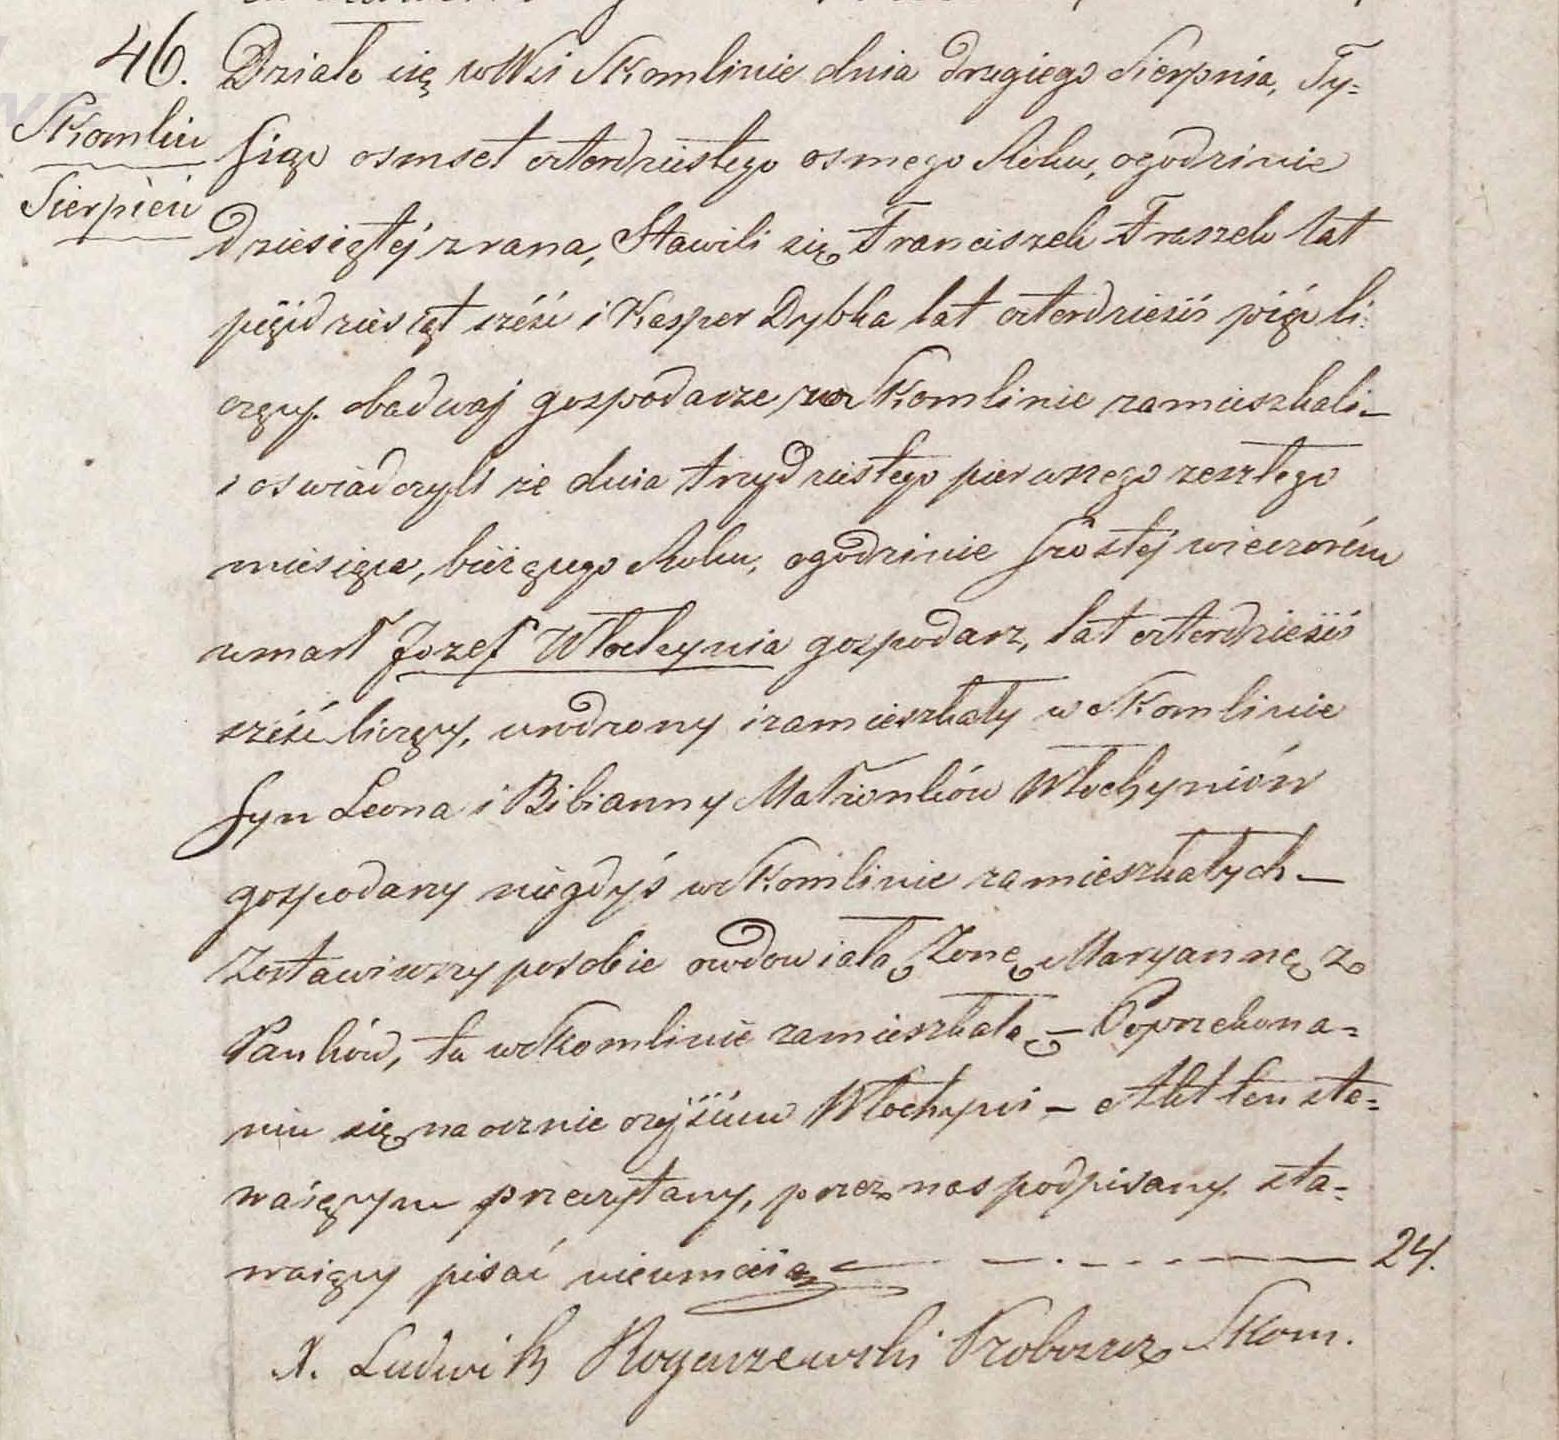 46. Działo się w Wsi Skomlinie dnia drugiego Sierpnia, Ty=
Skomlin
siąc osmset czterdziestego osmego Roku, ogodzinie
Sierpień
dziesiątej zrana, Stawili się Franciszek Fraszek lat
pięćdziesiąt sześć i Kasper Dybka lat czterdzieści pięć li=
czący. obadwaj gospodarze w Skomlinie zamieszkali –
i oswiadczyli że dnia trzydziestego pierwszego zeszłego
miesiąca, bieżącego Roku, ogodzinie szostej wieczorém
umarł Jozef Włochynia gospodarz, lat czterdzieści
sześć liczący, urodzony i zamieszkały w Skomlinie
syn Leona i Bibianny Małżonków Włochyniów
gospodarzy niegdyś w Skomlinie zamieszkałych –
Zostawiwszy po sobie owdowiałą Zonę Maryannę z
Panków, tu w Skomlinie zamieszkałą – Poprzekona=
niu się naocznie o zejściu Włochyni – Akt ten sta=
waiącym przeczytany, przez nas podpisany sta=
waiący pisać nieumieią 24.
X. Ludwik Rogaszewski Proboszcz Skom.